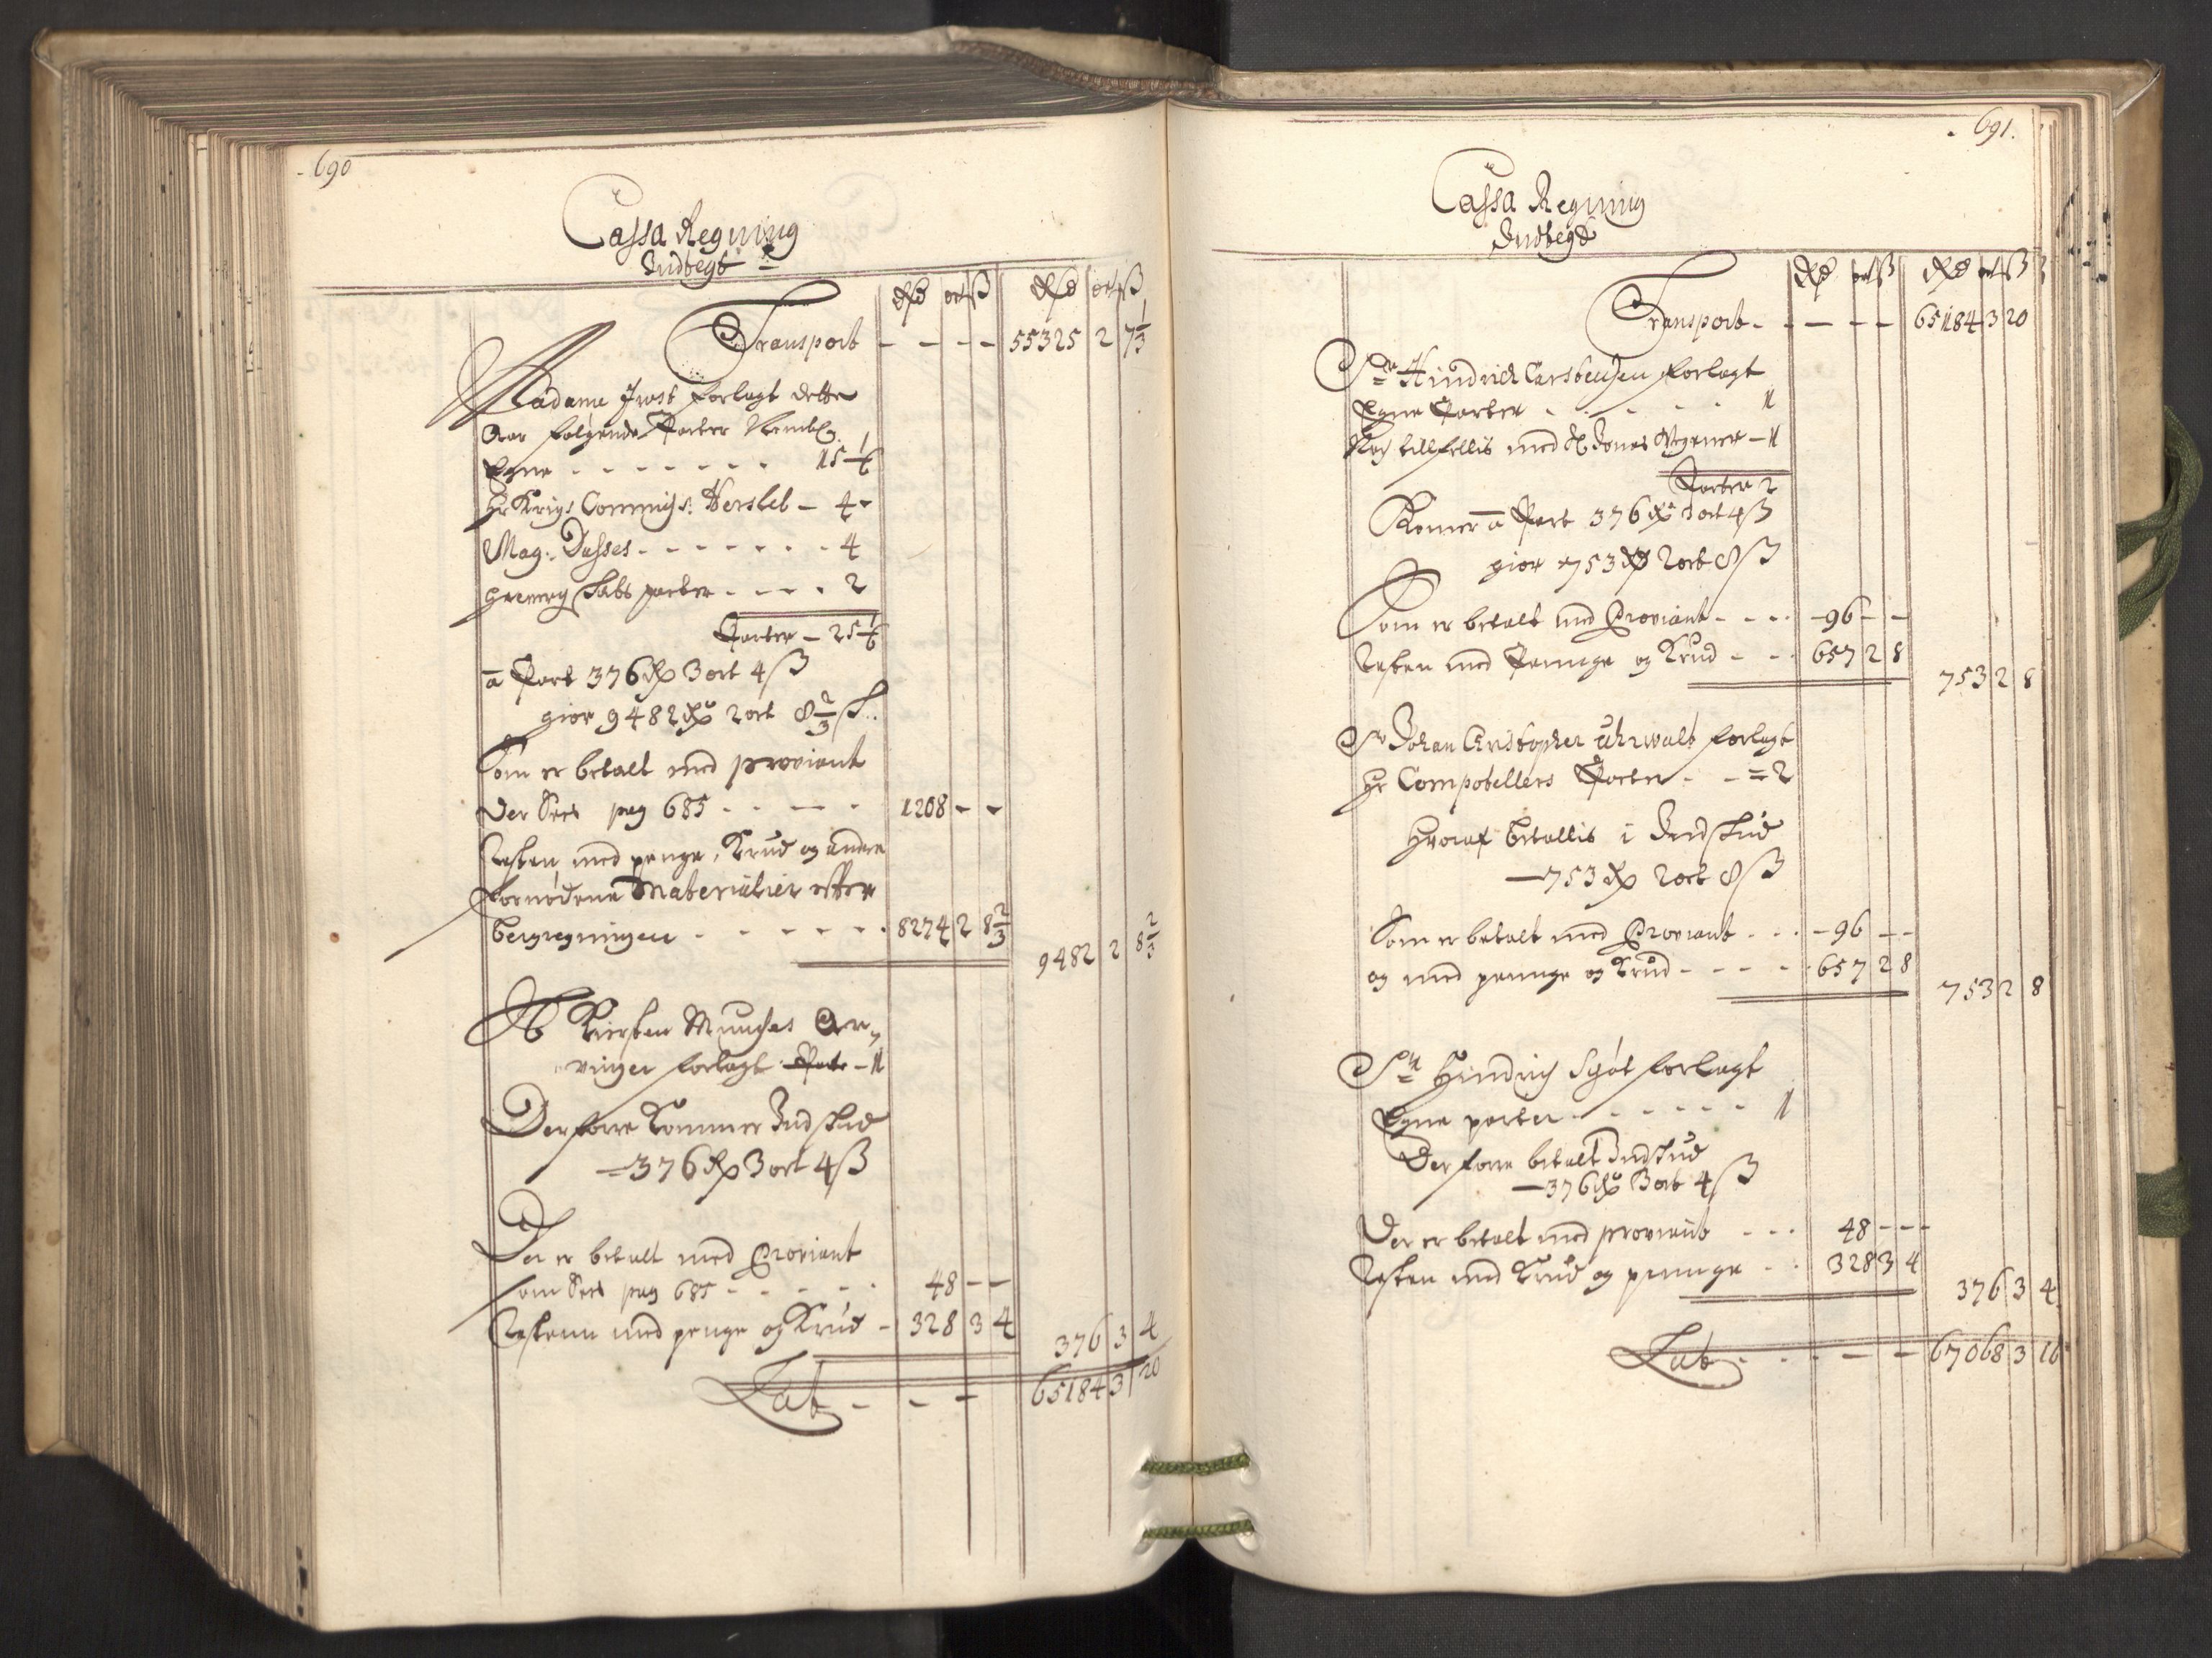 690
Cassa Regning
Indtegt
Rd ort ß Rd ort ß
Transport - - - - 55325 2 7 1/3
Madame Irost forlagt dette
Aar følgende Parter Nembl.
Egne - - - - - - - 15 1/6
Hr Krigs Commiss: Hersleb - 4 -
Mag: Dasses - - - - - - - 4
parter - - - - 2
Parter - 25 1/6
a Part 376 Rd 3 ort 4 ß
giør 9482 Rd 2 ort 8 2/3 ß.
Som er betalt med proviant
Der Sees pag 685 - - - - 1208 - -
Resten med penge, Krud og andre
fornødene Materialier efter
bergregningen - - - - - - 8274 2 8 2/3
9482 2 8 2/3
Kiersten Munches Ar-
vinger forlagt Part - 1
Derforre Kommer Indskud
- 376 Rd 3 ort 4 ß
Der er betalt med Proviant
som Sees pag 685 - - - - - 48 - -
Restenn med penge og Krud - 328 3 4
376 3 4
Lat - - - 65184 3 20
691.
Cassa Regning
Indtegt
Rd ort ß Rd ort ß
Transport - - - - - 65184 3 20
Sr Hindrich Carstensen forlagt
Egne Parter - - - - - 1
Nok tillfellis med H Jonas - 1
Parter 2
Kommer a Part 376 Rd 3 ort 4 ß
giør 753 Rd 2 ort 8 ß
Som er betalt med Proviant - - - - 96 - -
Resten med Pennge og Krud - - - 657 2 8
753 2 8
Sr Johan Christopher Uhrwalt forlagt
Hr Compotellers Parter - - = 2
Hvoraf betallis i Indskud
- 753 Rd 2 ort 8 ß
Som er betalt med Proviant - - - - 96 - -
og med pennge og Krud - - - - - 657 2 8
753 2 8
Sr Hindrich Schøt forlagt
Egne parter - - - - - - - 1
Derforre betalt Indskud
- 376 Rd 3 ort 4 ß
Der er betalt med proviant - - - 48 - - -
Resten med Krud og pennge - - 328 3 4
376 3 4
Lat - - - - - 67068 3 16